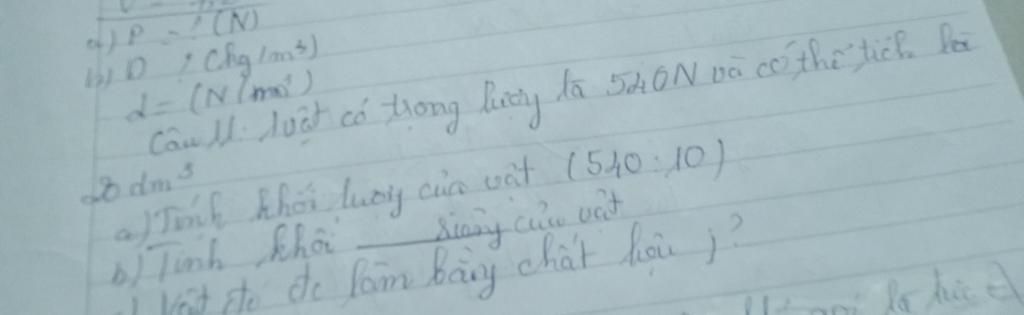 a) P = ? (N)
b) D ? (kg/m³)
d = (N/m³)
Câu 11. 1 vật có trọng lượng là 540N và có thể tích là
20 dm³
a) Tính khối lượng của vật (540:10)
b) Tính khối riêng của vật
Vật đó đc làm bằng chất liệu j?
là